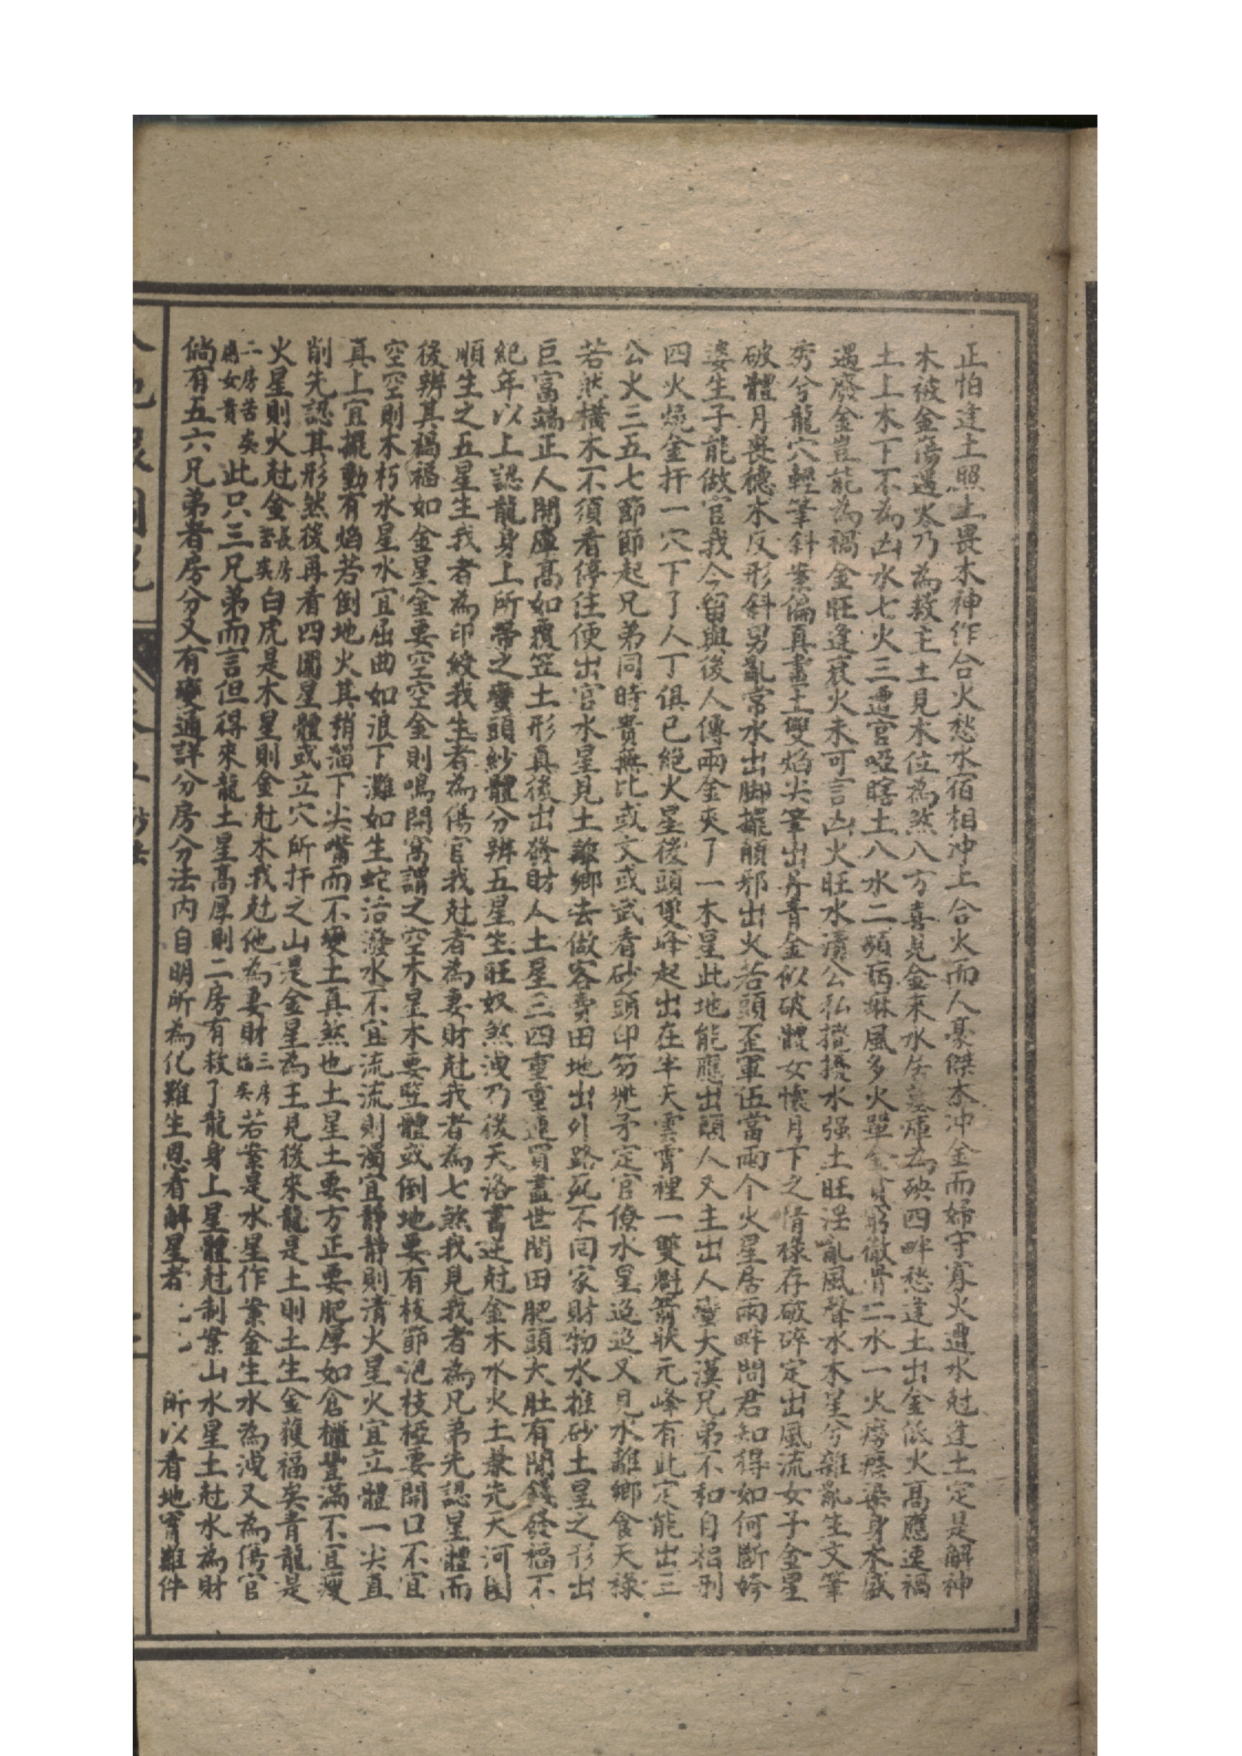 正怕逢土照土畏木神作合火愁水宿相冲上合火而人豪傑木冲金而婦守寡火遭水尅逢土定是解神
木被金傷遇火乃為救主土見木位為煞八方喜見金來水庫為殃四畔愁逢土出金低火高應速禍
土上木下不為凶水七火三遭官啞瞎土八水二頻西麻風多火單金貧窮徹骨二水一火癆瘵染身木盛
遇廢金豈能為禍金旺逢衰火未可言凶火旺水清公私攪擾水强土旺淫亂風聲水木星兮雜亂生文筆
秀兮龍穴輕筆斜案偏真畫土雙焰尖筆出丹青金似破體女懷月下之情祿存破碎定出風流女子金星
破體月喪德水反形斜男亂常水出脚擺頭邪出火若頭歪軍伍當兩个火星居兩畔問君知得如何斷
婆生子能做官我今留與後人傳兩金夾了一木星此地能應出頭人又主出人蠻大漢兄弟不和自相刑
四火燒金扞一穴下了人丁俱已絕火星後頭雙峰起出在半天雲霄裡一雙 狀元峰有此定能出三
公火三五七節節起兄弟同時貴無比或文或武看砂頭印笏 矛定官僚水星迢迢又見水離鄉食天祿
若然橫木不須看停住便出官水星見土離鄉去做客賣田地出外路死不回家財物水推砂土星之形出
巨富端正人開庫高如覆笠土形真後出發財人土星三四重重連買盡世間田肥頭大肚有閒錢發福不
紀年以上認龍身上所帶之巒頭紗體分辨五星生旺奴煞洩乃後天洛書逆尅金木水火土兼先天河圖
順生之五星生我者為印綬我生者為傷官我尅者為妻財尅我者為七煞我見我者為兄弟先認星體而
後辨其禍福如金星金要空空金則鳴開窩謂之空木星木要堅體或倒地要有枝節泡枝椏要開口不宜
空空則木朽水星水宜屈曲如浪下灘如生蛇活潑水不宜流流則濁宜靜靜則清火星火宜立體一尖直
真上宜擺動有焰若倒地火其稍 下尖嘴而不變土真煞也土星土要方正要肥厚如倉櫃豐滿不宜瘦
削先認其形然後再看四圍星體或立穴所扞之山是金星為主見後來龍是土則土生金獲福矣青龍是
火星則火尅金長房苦矣白虎是木星則金尅木我尅他為妻財三房 矣若案是水星作案金生水為洩又為傷官
二房苦矣 女貴此只三兄弟而言但得來龍土星高厚則二房有救了龍身上星體尅制案山水星土尅水為財
倘有五六兄弟者房分又有變通詳分房分法內自明所為化難生恩看解星者
所以看地實難件